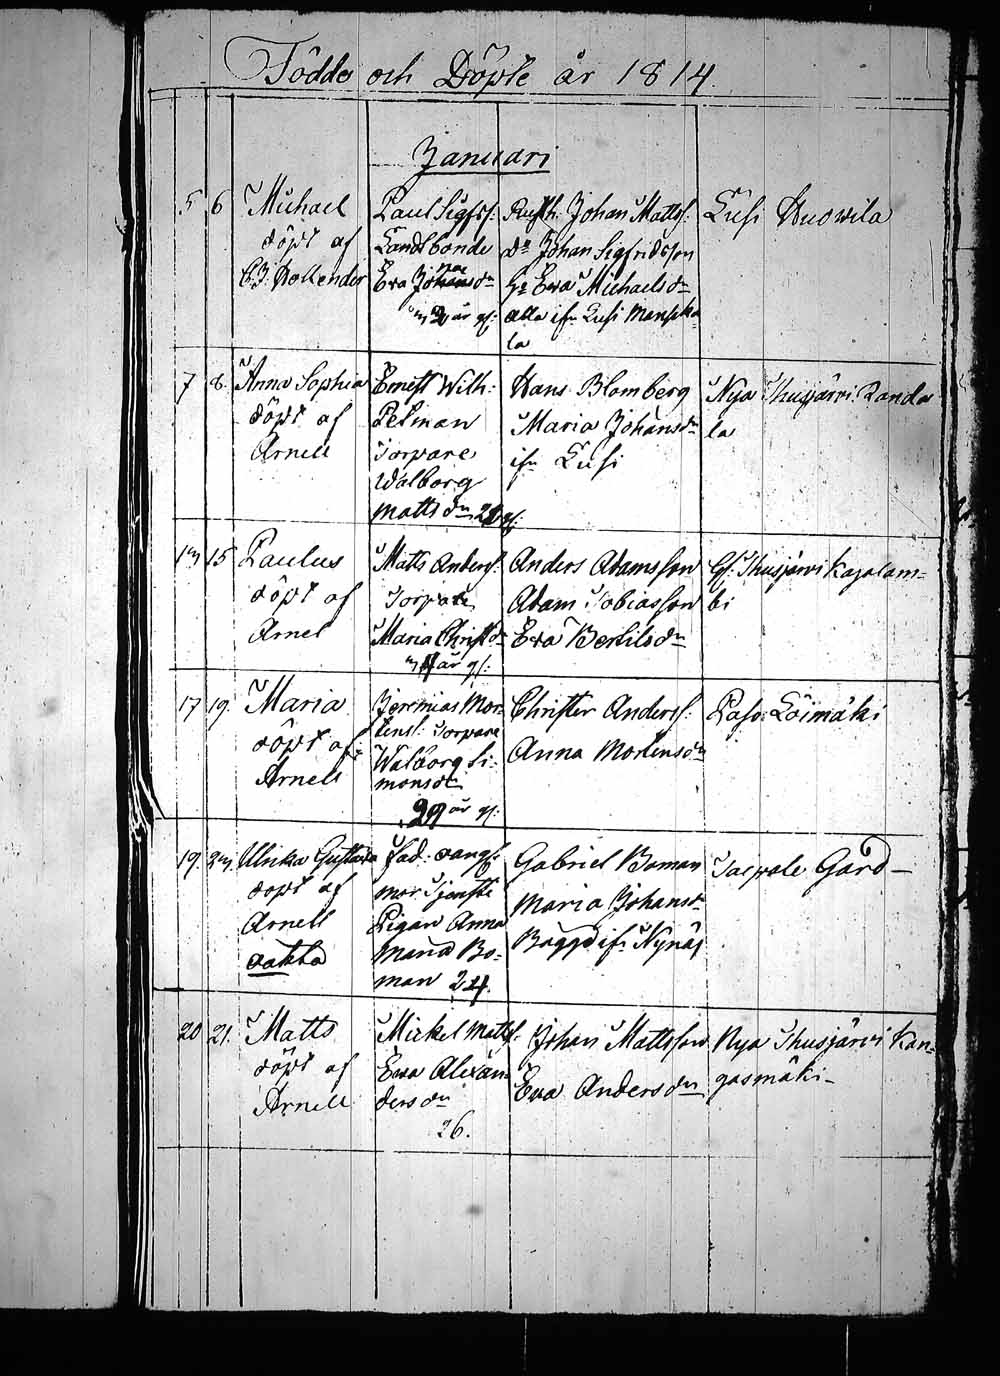 Födde och Döpte år 1814.
Januari
5 6 Michael
döpt af
C. J. Dollender
Paul Sigfss:
Landtbonde
Eva Johansdr
år g:
Rusth. Johan Mattss:
Do Johan Sigfridsson
Hu Ewa Michaelsdr
alla ifn Kusi Manska
la
Kusi Huowila
7 8. Anna Sophia
döpt af
Arnell
Ernest Wilh:
Petman
Torpare
Walborg
Mattsdr g:
Hans Blomberg
Maria Johansdr
ifn Kusi
Nya Thusjärvi Randa
la
13 15 Paulus
döpt af
Arnel
Matts Anderss:
Torpare
Maria Christdr
år g:
Anders Adamsson
Adam Tobiasson
Eva Bertilsdr
Gl: Thusjärvi Kajalam-
bi
17 19. Maria
döpt af
Arnell
Jeremias Mor-
tenss: Torpare
Walborg Si-
monsdr
29 år g:
Christer Anderss:
Anna Mortensdr
Löimäki
19. Ulrika Gustava
döpt af
Arnell
oäkta
Fad: oangf:
mor Tjenste
Pigan Anna
Maria Bo-
man 24.
Gabriel Boman
Maria Johansdr
ifn Nynäs
Taipale Gård
20 21. Matts
döpt af
Arnell
Mickel Mattss:
Ewa Alexan-
dersdr
26.
Johan Mattsson
Eva Andersdr
Nya Thusjärvi Kan-
gasmäki